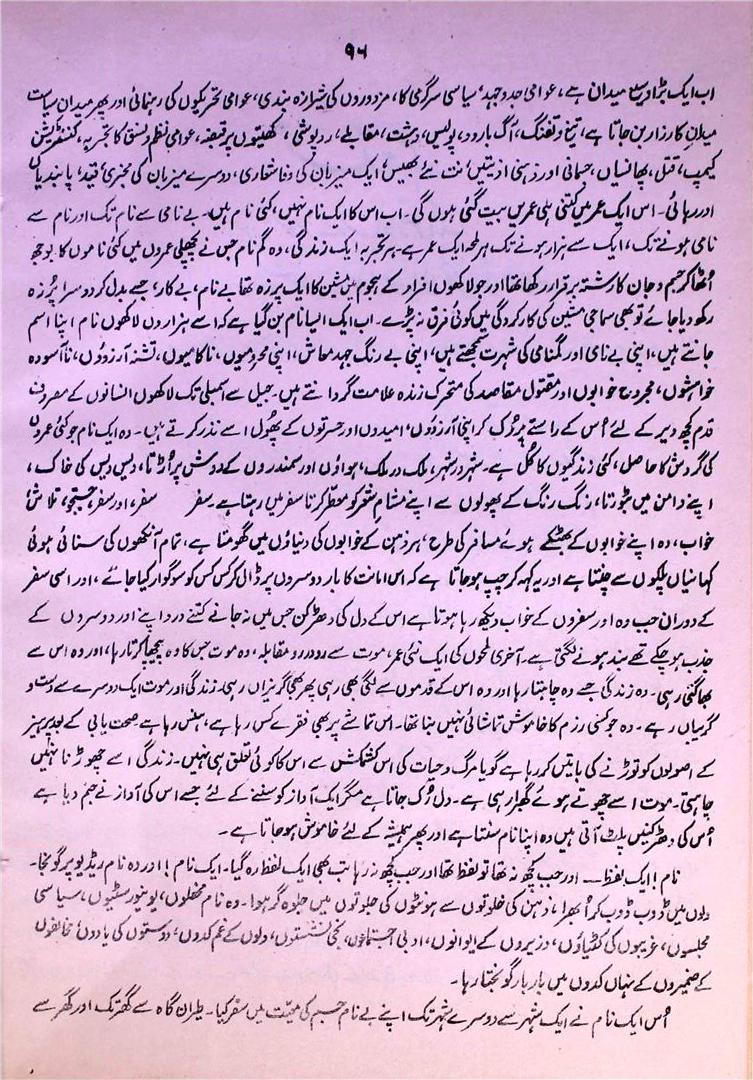 ۹۶
اب ایک بڑا وسیع میدان ہے، عوامی جدوجہد، سیاسی سرگرمی کا، مزدوروں کی شیرازہ بندی، عوامی تحریکوں کی رہنمائی اور پھر میدان سیاست
میدان کارزار بن جاتا ہے، تیغ و تفنگ، آگ بارود، پولیس، دہشت، مقابلے، روپوشی، کھیتوں پر قبضہ، عوامی نظم و نسق کا تجربہ، کنسنٹریشن
کیمپ، قتل، پھانسیاں، جسمانی اور ذہنی اذیتیں، نت نئے بھیس، ایک میزبان کی وفاشعاری، دوسرے میزبان کی مخبری، قید، پابندیاں
اور رہائی۔ اس ایک عمر میں کتنی ہی عمریں بیت گئی ہوں گی۔ اب اس کا ایک نام نہیں، کئی نام ہیں۔ بے نامی سے نام تک اور نام سے
نامی ہونے تک، ایک سے ہزار ہونے تک ہر لمحہ ایک عمر ہے۔ ہر تجربہ ایک زندگی، وہ گم نام جس نے پچھلی عمروں میں کئی ناموں کا بوجھ
اُٹھا کر جسم و جان کا رشتہ برقرار رکھا تھا اور جو لاکھوں افراد کے ہجوم میں مشین کا ایک پرزہ تھا بے نام، بے کار، جسے بدل کر دوسرا پرزہ
رکھ دیا جائے تو بھی سماجی مشین کی کارکردگی میں کوئی فرق نہ پڑے۔ اب ایک ایسا نام بن گیا ہے کہ اسے ہزاروں لاکھوں نام اپنا اسم
جانتے ہیں، اپنی بے نامی اور گمنامی کی شہرت سمجھتے ہیں، اپنی بے رنگ جہد معاش، اپنی محرومیوں، ناکامیوں، تشنہ آرزوؤں، ناآسودہ
خواہشوں، مجروح خوابوں اور مقتول مقاصد کی متحرک زندہ علامت گردانتے ہیں۔ جیل سے اسمبلی تک لاکھوں انسانوں کے مصروف
قدم کچھ دیر کے لئے اُس کے راستے پر رُک کر اپنی آرزوؤں، امیدوں اور حسرتوں کے پھول اسے نذر کرتے ہیں۔ وہ ایک نام جو کئی عمروں
کی گردش کا حاصل، کئی زندگیوں کا کُل ہے۔ شہر در شہر، ملک در ملک، ہواؤں اور سمندروں کے دوش پر اُڑتا، دیس دیس کی خاک،
اپنے دامن میں بٹورتا، رنگ رنگ کے پھولوں سے اپنے مشام شعر کو معطر کرتا سفر میں رہتا ہے۔ سفر سفر، اور سفر، جستجو، تلاش
خواب، وہ اپنے خوابوں کے بھٹکے ہوئے مسافر کی طرح، ہر ذہن کے خوابوں کی دنیاؤں میں گھومتا ہے، تمام آنکھوں کی سنائی ہوئی
کہانیاں پلکوں سے چنتا ہے اور یہ کہہ کر چپ ہو جاتا ہے کہ اس امانت کا بار دوسروں پر ڈال کر کس کس کو سوگوار کیا جائے، اور اسی سفر
کے دوران جب وہ اور سفروں کے خواب دیکھ رہا ہوتا ہے اس کے دل کی دھڑکن جس میں نہ جانے کتنے درد اپنے اور دوسروں کے
جذب ہو چکے تھے بند ہونے لگتی ہے۔ آخری لمحوں کی ایک نئی عمر، موت سے دو در دو مقابلہ، وہ موت جس کا وہ پیچھا کرتا رہا، اور وہ اس سے
بھاگتی رہی۔ وہ زندگی جسے وہ چاہتا رہا اور وہ اس کے قدموں سے لگی بھی رہی پھر بھی گریزاں رہی۔ زندگی اور موت ایک دوسرے سے دست و
گریباں رہے۔ وہ جو کسی رزم کا خاموش تماشائی نہیں بنا تھا۔ اس تماشے پر بھی فقرے کس رہا ہے، ہنس رہا ہے صحت یابی کے بعد پرہیز
کے اصولوں کو توڑنے کی باتیں کر رہا ہے گویا مرگ و حیات کی اس کشمکش سے اس کا کوئی تعلق ہی نہیں۔ زندگی اسے چھوڑنا نہیں
چاہتی۔ موت اسے چھوتے ہوئے گھبرا رہی ہے۔ دل رُک جاتا ہے مگر ایک آواز کو سننے کے لئے جسے اس کی آواز نے جنم دیا ہے
اُس کی دھڑکنیں پلٹ آتی ہیں وہ اپنا نام سنتا ہے اور پھر ہمیشہ کے لئے خاموش ہو جاتا ہے۔
نام! ایک لفظ — اور جب کچھ نہ تھا تو لفظ تھا اور جب کچھ نہ رہا تب بھی ایک لفظ رہ گیا۔ ایک نام! اور وہ نام ریڈیو پر گونجا۔
دلوں میں ڈوب ڈوب کر اُبھرا، ذہن کی خلوتوں سے ہونٹوں کی جلوتوں میں جلوہ گر ہوا۔ وہ نام محفلوں، یونیورسٹیوں، سیاسی
مجلسوں، غریبوں کی کٹیاؤں، وزیروں کے ایوانوں، ادبی اجتماعوں، نجی نشستوں، دلوں کے غم کدوں، دوستوں کی یادوں، مخالفوں
کے ضمیروں کے نہاں کدوں میں بار بار گونجتا رہا۔
اُس ایک نام نے ایک شہر سے دوسرے شہر تک اپنے بے نام جسم کی معیت میں سفر کیا۔ طیران گاہ سے گھر تک اور گھر سے